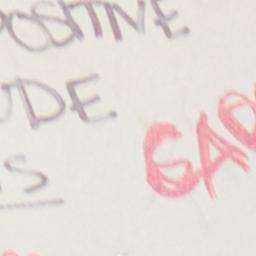 POSITIVE
UDE.
S
GAO